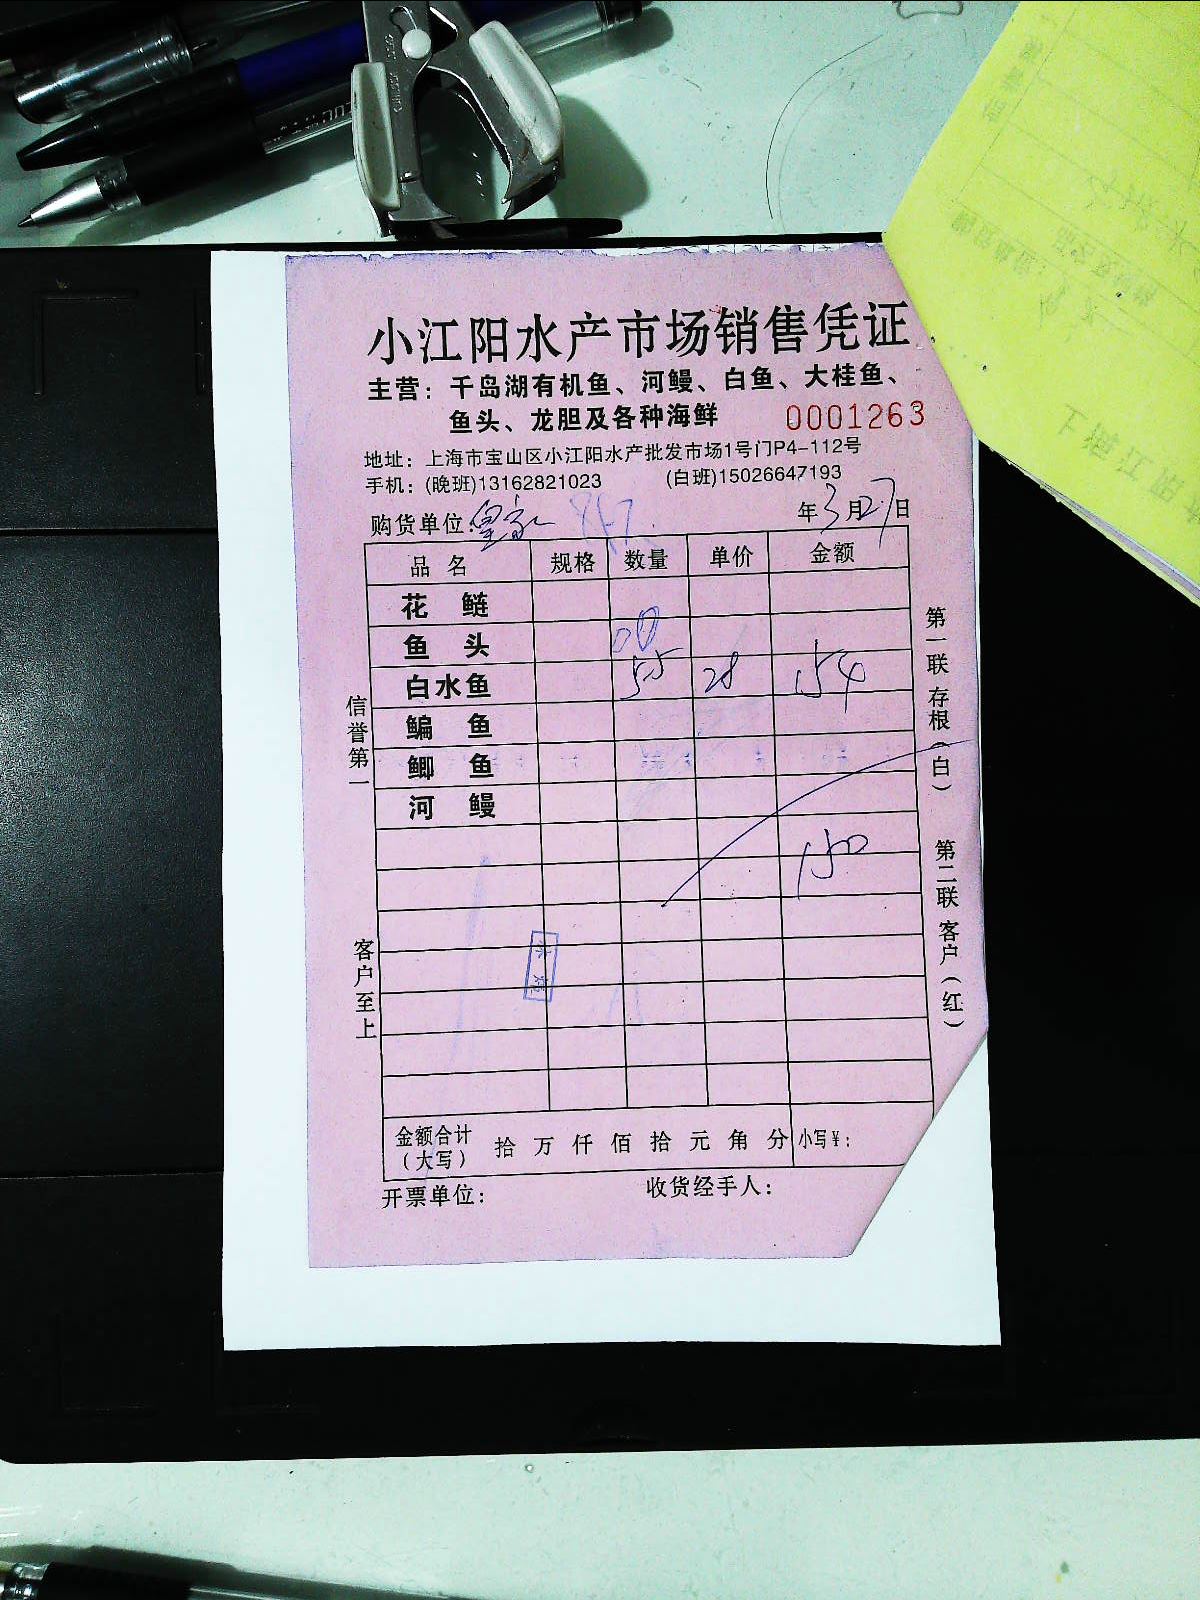 小江阳水产市场销售凭证
主营：千岛湖有机鱼、河鳗、白鱼、大桂鱼、
鱼头、龙胆及各种海鲜 0001263
地址：上海市宝山区小江阳水产批发市场1号门P4-112号
手机：(晚班)13162821023 (白班)15026647193
购货单位： 年3月27日
品 名 规格 数量 单价 金额
花 鲢
鱼 头
白水鱼 55 28 154
鳊 鱼
鲫 鱼
河 鳗
150
金额合计（大写） 拾 万 仟 佰 拾 元 角 分 小写￥：
开票单位： 收货经手人：
信誉第一
客户至上
第一联 存根（白）
第二联 客户（红）